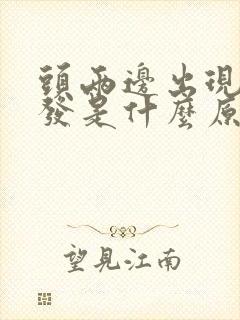 頭兩邊出現
發是什麼原
望見江南